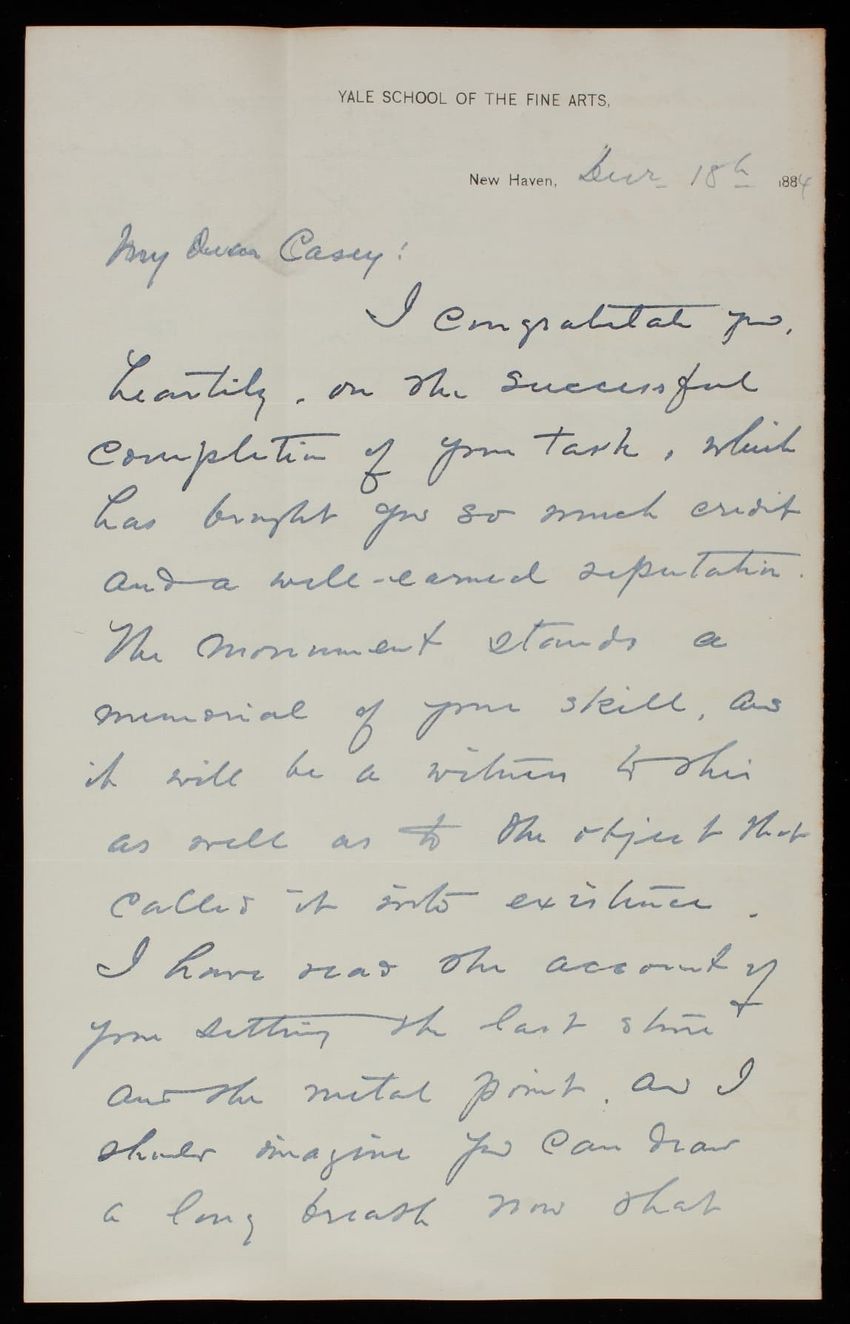 YALE SCHOOL OF THE FINE ARTS,
New Haven, Decr 18th 1884
My Dear Casey!
I congratulate you,
heartily, on the successful
completion of your task, which
has brought you so much credit
and a well-earned reputation.
The monument stands a
memorial of your skill, and
it will be a witness to this
as well as to the object that
called it into existence.
I have read the account of
your setting the last stone
and the metal point, and I
should imagine you can draw
a long breath now that